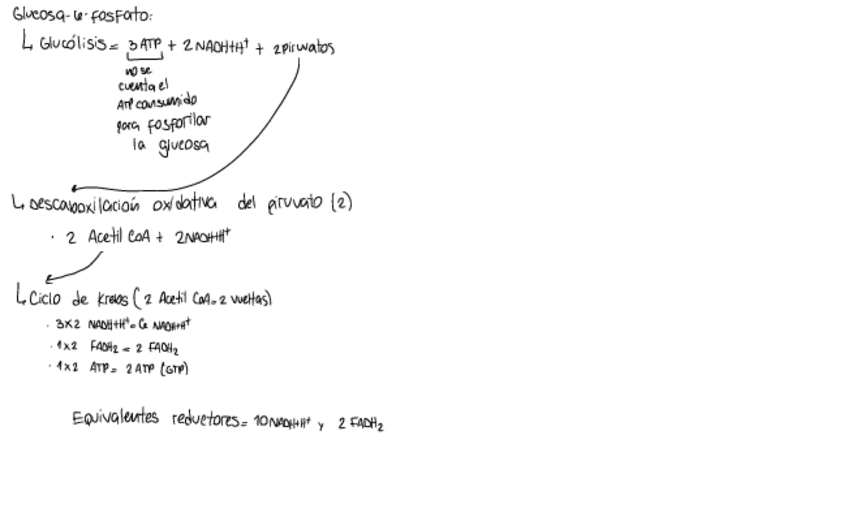 Glucosa-6-fosfato:
↳ Glucólisis = 3 ATP + 2 NADH+H⁺ + 2 piruvatos
no se
cuenta el
ATP consumido
para fosforilar
la glucosa
↳ Descarboxilación oxidativa del piruvato (2)
· 2 Acetil CoA + 2NADH+H⁺
↳ Ciclo de Krebs (2 Acetil CoA = 2 vueltas)
· 3x2 NADH+H⁺ = 6 NADH+H⁺
· 1x2 FADH₂ = 2 FADH₂
· 1x2 ATP = 2 ATP (GTP)
Equivalentes reductores = 10 NADH+H⁺ y 2 FADH₂